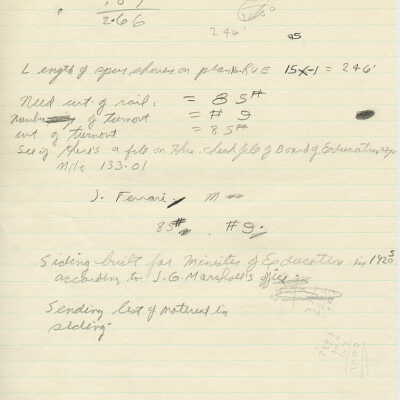 2.66
246'
95
Length of spur shown on plan 15X-1 = 246'
Need wt of rail. = 85#
Number of turnout = # 9
wt of turnout = 85#
See if there's a file on this. Check file of Board of Education
Mile 133.01
J. Ferrari M
85# #9.
Siding built for Minister of Education in 1920s
according to J.G Marshall's office
Sending list of material in
siding.